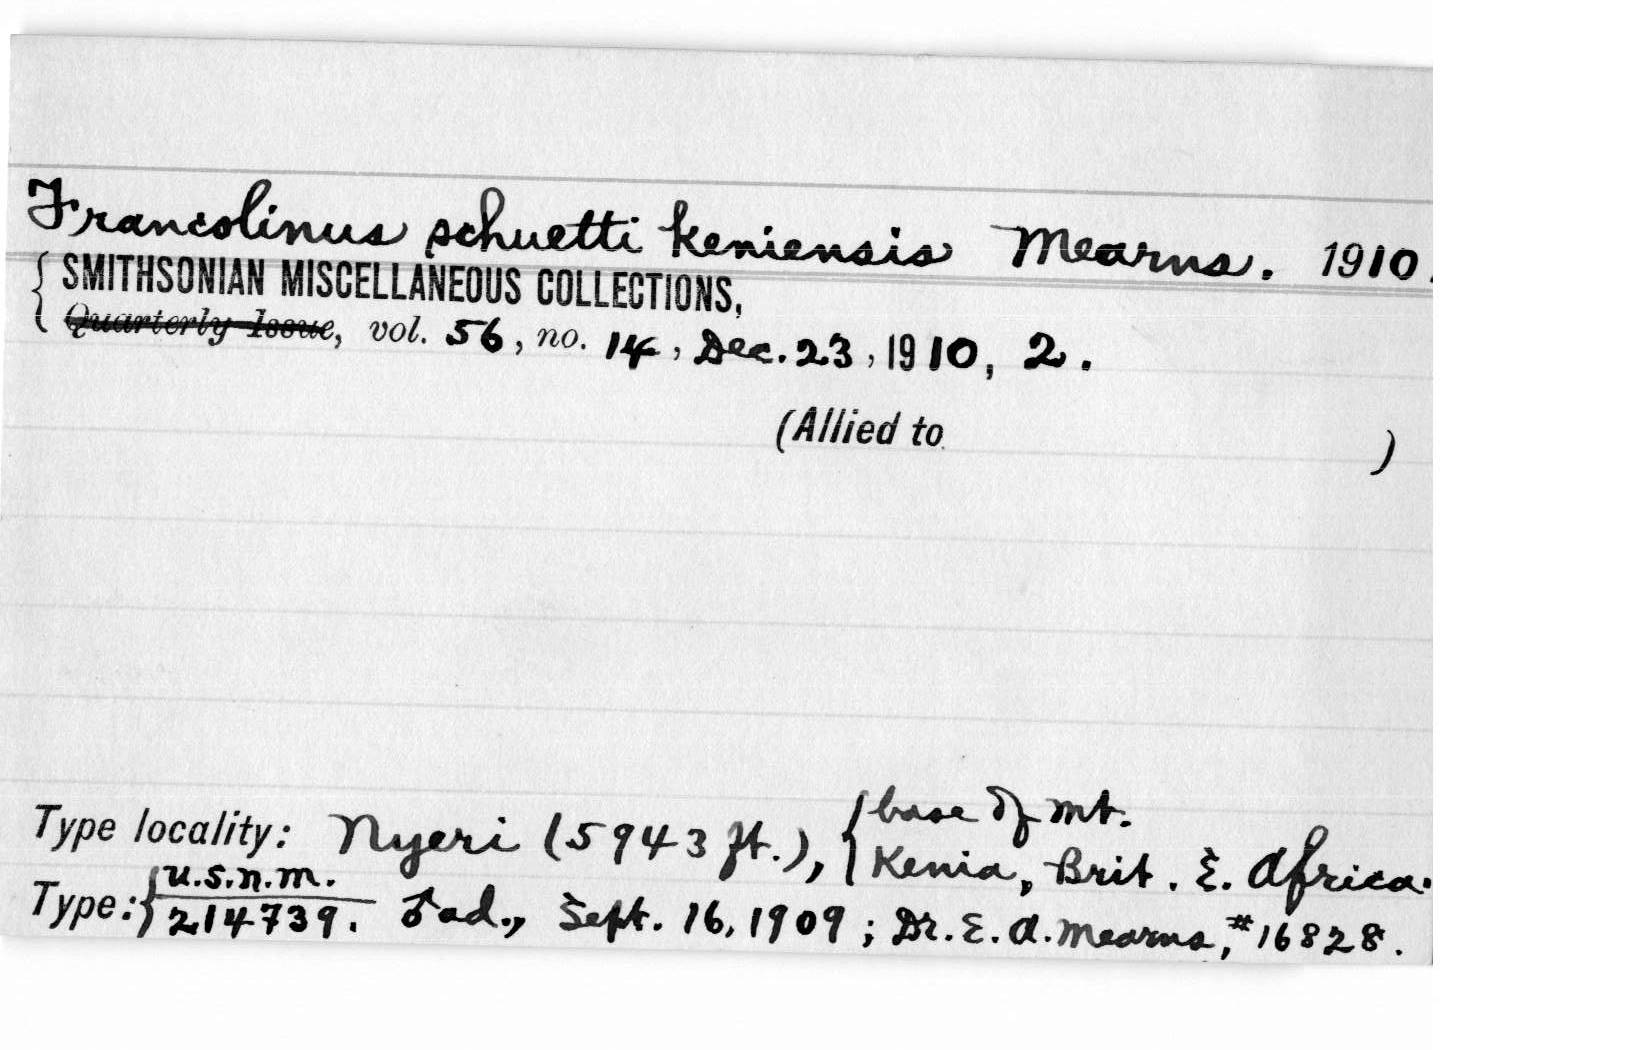 Francolinus schuetti keniensis Mearns. 1910.
{ SMITHSONIAN MISCELLANEOUS COLLECTIONS,
Quarterly Issue, vol. 56, no. 14, Dec. 23, 1910, 2.
(Allied to )
{ base of mt.
Type locality: Nyeri (5943 ft.), Kenia, Brit. E. Africa.
{ U.S.N.M.
Type: 214739. ♂ ad., Sept. 16, 1909; Dr. E. A. Mearns, #16828.